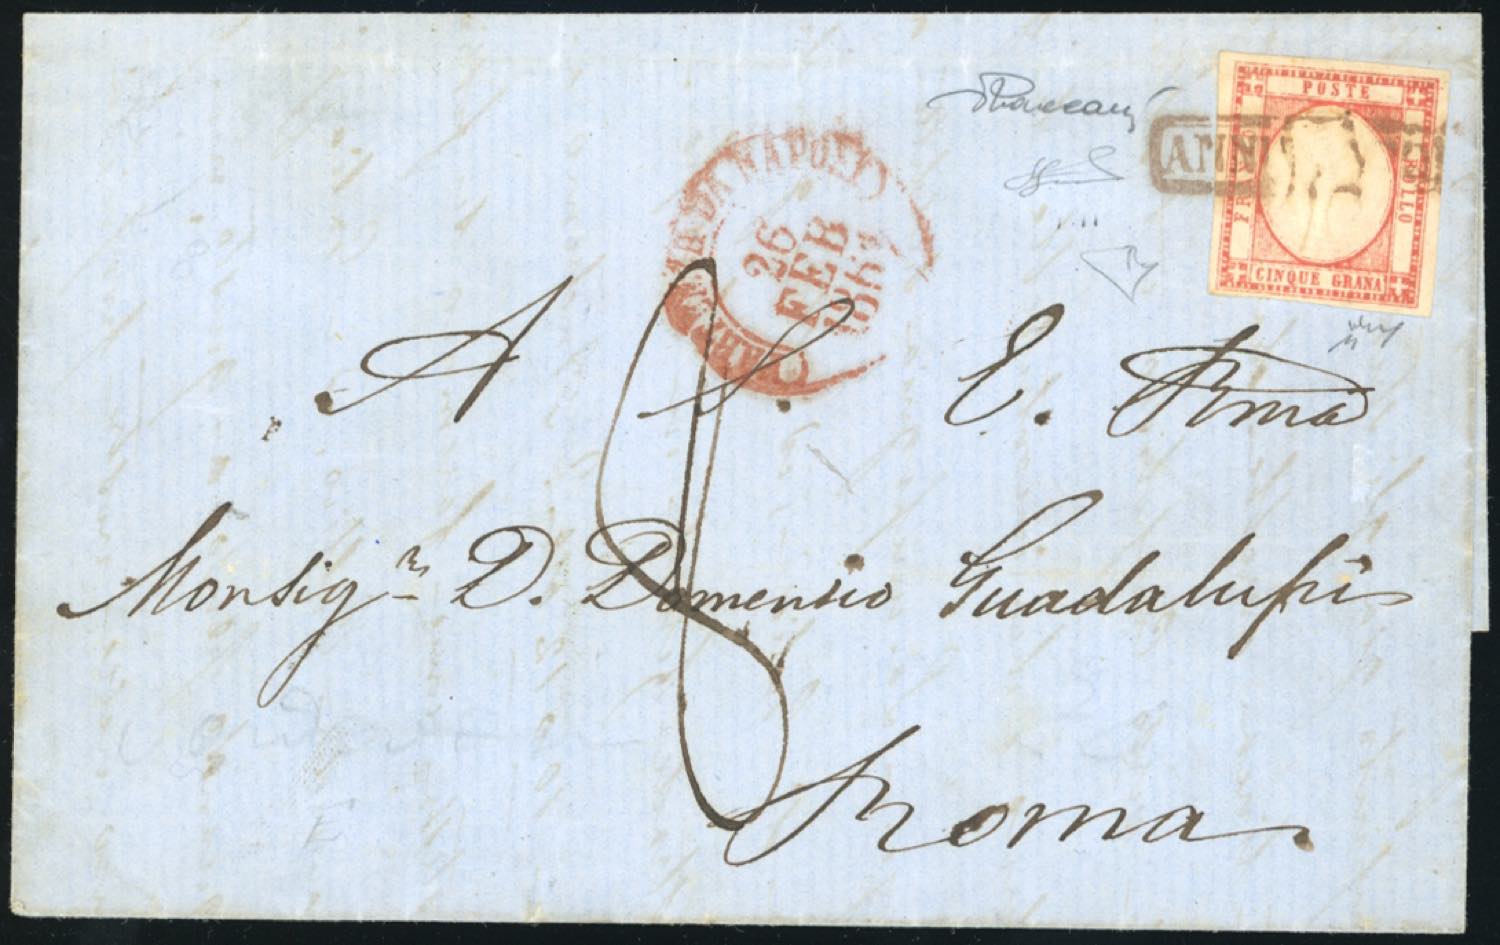 POSTE
FRANCO
BOLLO
CINQUE GRANA
ANN
NAPOLI
26
FEB
1861
8
A S. E. Rma
Monsigr. D. Domenico Guadalupi
Roma.